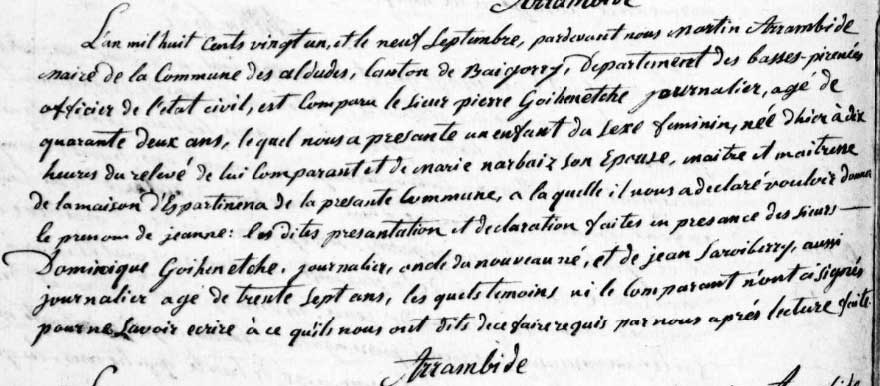 Arrambide
L'an mil huit cents vingt un, et le neuf Septembre, pardevant nous Martin Arrambide
maire de la Commune des aldudes, Canton de Baigorry, Departement des basses-pirenées
officier de l'état civil, est Comparu le sieur pierre Goihenetche journalier, agé de
quarante deux ans, lequel nous a presante un enfant du sexe feminin, née d'hier à dix
heures du relevé de lui Comparant et de Marie narbaiz son Epouse, maitre et maitresse
de la maison d'Espartinena de la presante Commune, a la quelle il nous a declaré vouloir donner
le prenom de jeanne: les dites presantation et declaration faites en presance des sieurs
Dominique Goihenetche, journalier, oncle du nouveau né, et de jean Saroiberry, aussi
journalier agé de trente sept ans, les quels temoins ni le comparant n'ont signés
pour ne savoir ecrire à ce qu'ils nous ont dits de ce faire requis par nous aprés lecture faite.
Arrambide
Arrambide